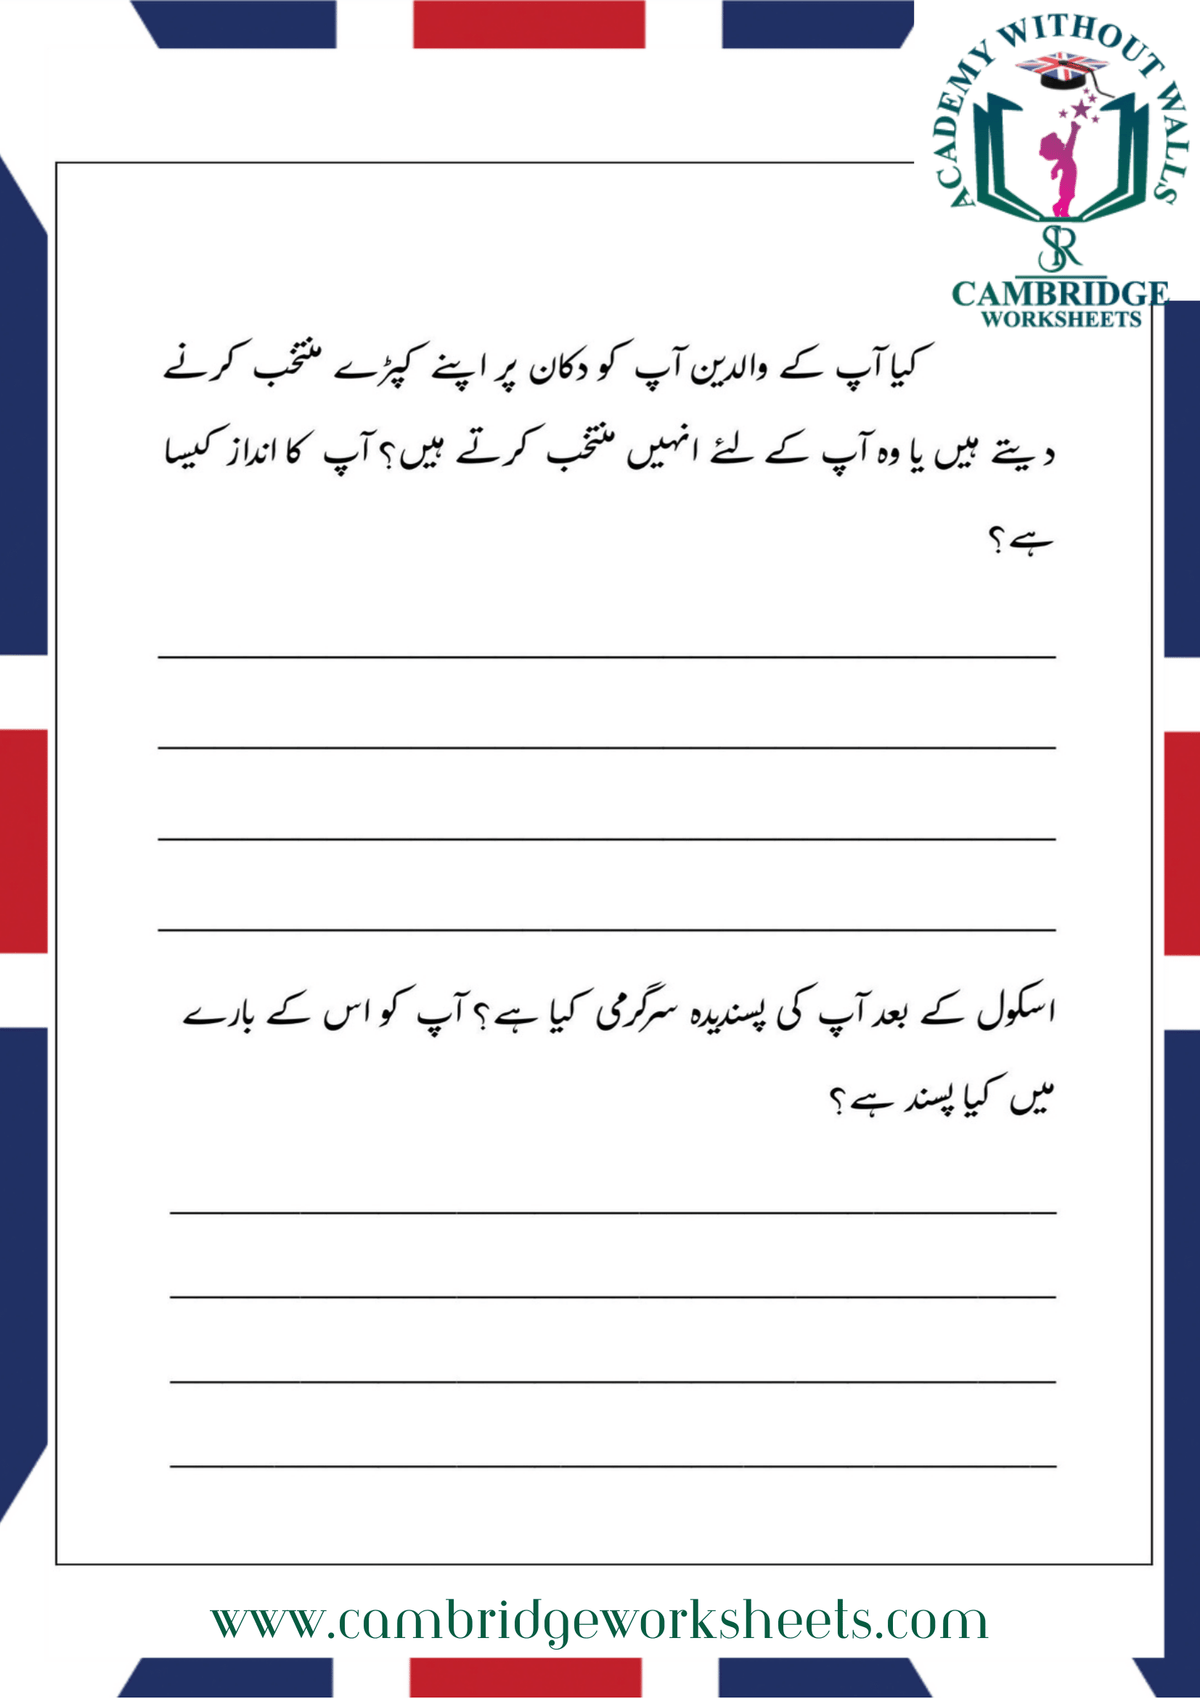 ACADEMY WITHOUT WALLS
SR
CAMBRIDGE
WORKSHEETS
کیا آپ کے والدین آپ کو دکان پر اپنے کپڑے منتخب کرنے
دیتے ہیں یا وہ آپ کے لئے انہیں منتخب کرتے ہیں؟ آپ کا انداز کیسا
ہے؟
اسکول کے بعد آپ کی پسندیدہ سرگرمی کیا ہے؟ آپ کو اس کے بارے
میں کیا پسند ہے؟
www.cambridgeworksheets.com